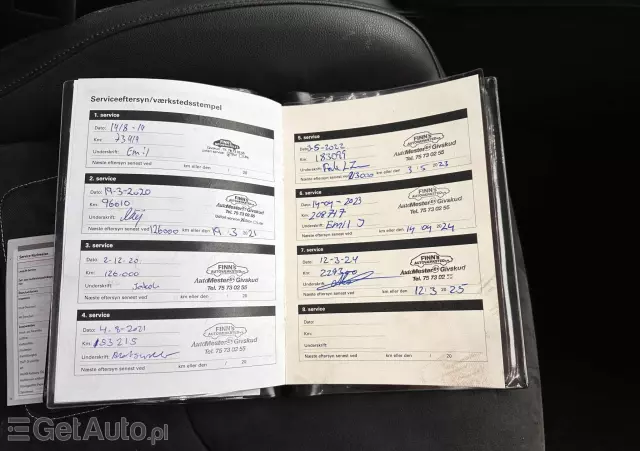 Serviceeftersyn/værkstedsstempel
1. service
Dato: 14/8-19
Km: 73419
Underskrift: Emil
Næste eftersyn ved km eller den / 20
2. service
Dato: 19-3-2020
Km: 96610
Underskrift:
FINN'S
AutoMester Givskud
Tel. 75 73 02 55
Næste eftersyn ved 126000 km eller den 19.3-2021
3. service
Dato: 2.12.20.
Km: 126.000
Underskrift: Jakob
FINN'S
AUTOVÆRKSTED
AutoMester Givskud
Tel. 75 73 02 55
Næste eftersyn senest ved km eller den / 20
4. service
Dato: 4.8-2021
Km: 153215
Underskrift:
FINN'S
AUTOVÆRKSTED
AutoMester Givskud
Tel. 75 73 02 55
Næste eftersyn senest ved km eller den / 20
5. service
Dato: 3-5-2022
Km: 183097
Underskrift:
FINN'S
AUTOVÆRKSTED
AutoMester Givskud
Tel. 75 73 02 55
Næste eftersyn senest ved 213000 km eller den 3/5 2023
6. service
Dato: 14-09-2023
Km: 208717
Underskrift: Emil J
FINN'S
AUTOVÆRKSTED
AutoMester Givskud
Tel. 75 73 02 55
Næste eftersyn senest ved km eller den 14/09 2024
7. service
Dato: 12-3-24
Km:
Underskrift:
FINN'S
AUTOVÆRKSTED
AutoMester Givskud
Tel. 75 73 02 55
Næste eftersyn senest ved km eller den 12.3 2025
8. service
Dato:
Km:
Underskrift:
Næste eftersyn senest ved km eller den / 20
GetAuto.pl